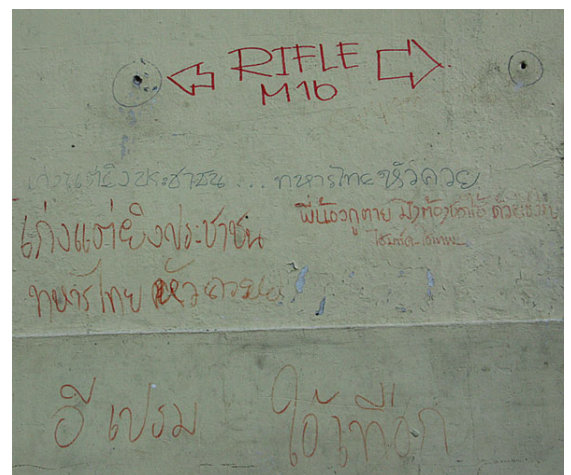 RIFLE
M16
เก่งแต่ยิงประชาชน... ทหารไทยหัวควย
เก่งแต่ยิงประชาชน
ทหารไทย หัวควย
พี่น้องกูตาย มึงต้องชดใช้ ด้วย
อีเปรม ไอ้เทือก